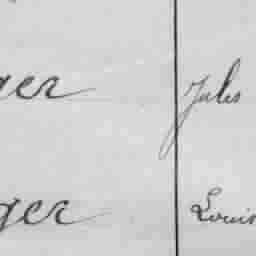 ger Jules
ger Louis